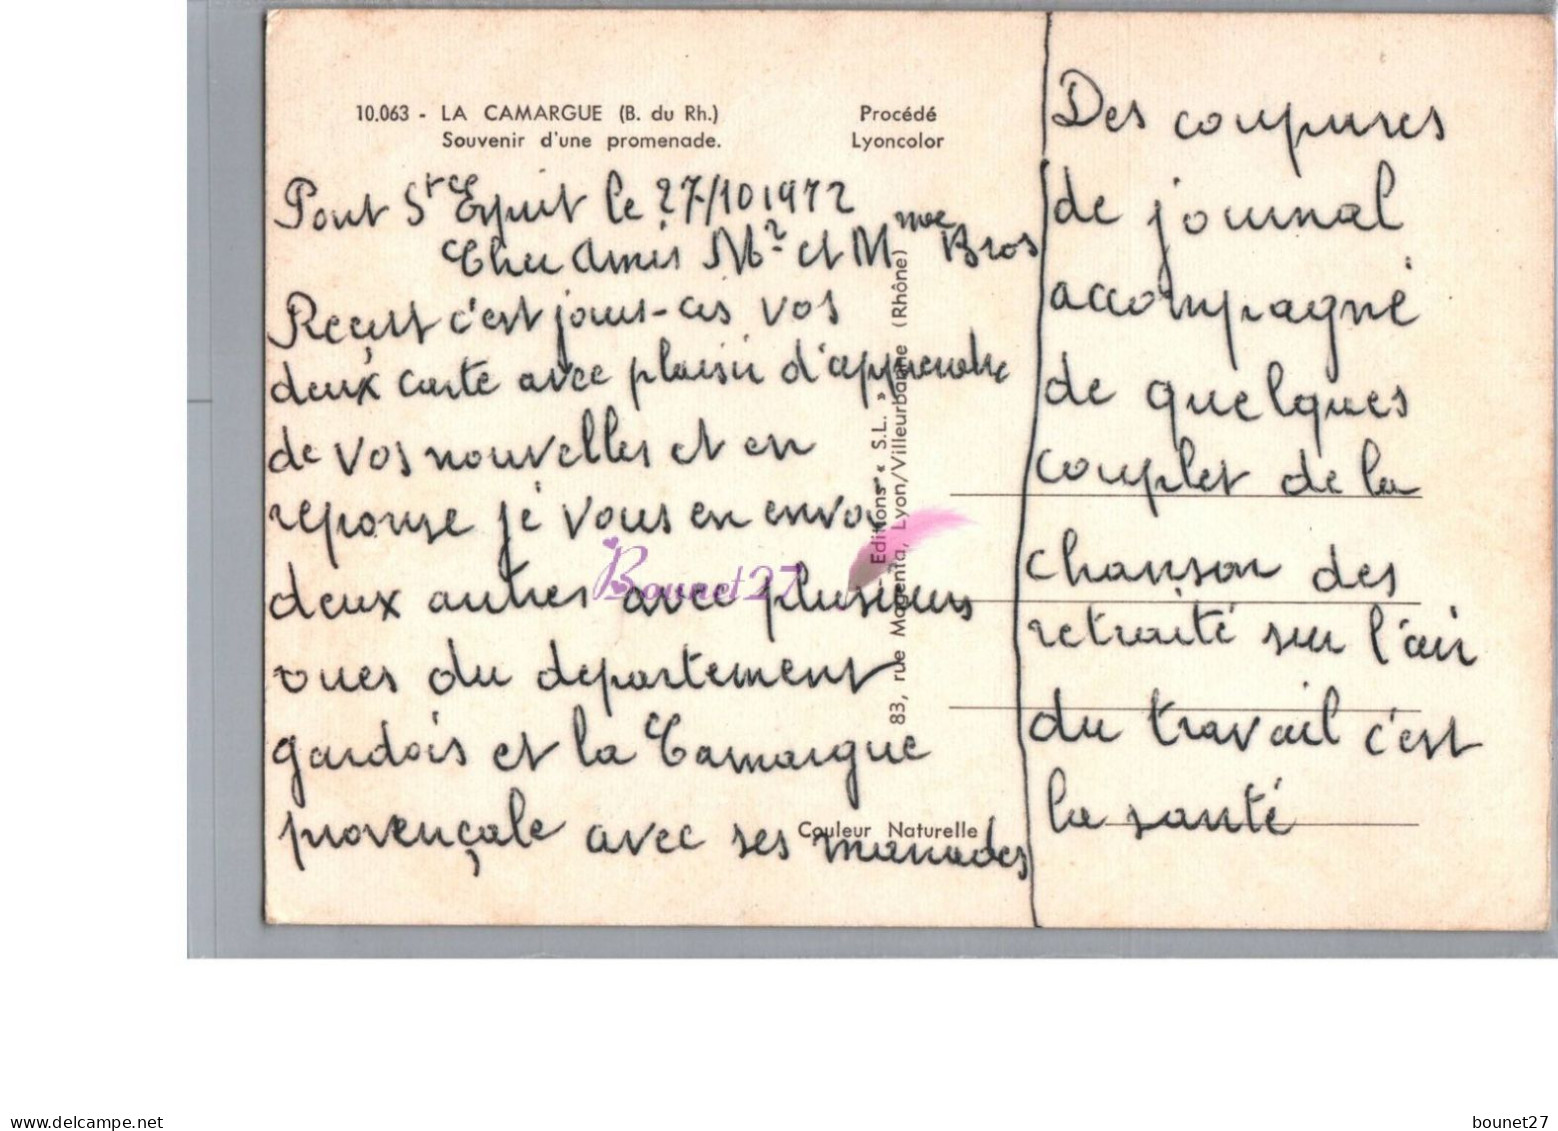 10.063 - LA CAMARGUE (B. du Rh.)
Souvenir d'une promenade.
Procédé
Lyoncolor
Pont St Esprit le 27/10 1972
Cher Amis Mr et Mme Bros
Reçut c'est jours-ces vos
deux carte avec plaisir d'apprendre
de vos nouvelles et en
reponse je vous en envoi
deux autres avec plusieurs
vues du departement
gardois et la Camargue
provençale avec ses manades
Couleur Naturelle
Editions « S.L. »
83, rue Magenta, Lyon/Villeurbanne (Rhône)
Des coupures
de journal
accompagné
de quelques
couplet de la
chanson des
retraité sur l'air
du travail c'est
la santé
Bounet27
www.delcampe.net
bounet27